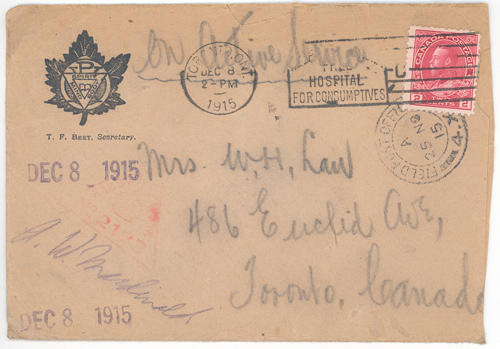 On Active Service
TORONTO, ONT.
DEC 8
2-PM
1915
FREE
HOSPITAL
FOR CONSUMPTIVES
CANADA POSTAGE
2 CENTS 2
FIELD POST OFFICE
A
25 NO
15
T. F. BEST, Secretary.
DEC 8 1915
Mrs W. H. Law
486 Euclid Ave,
Toronto, Canada
DEC 8 1915